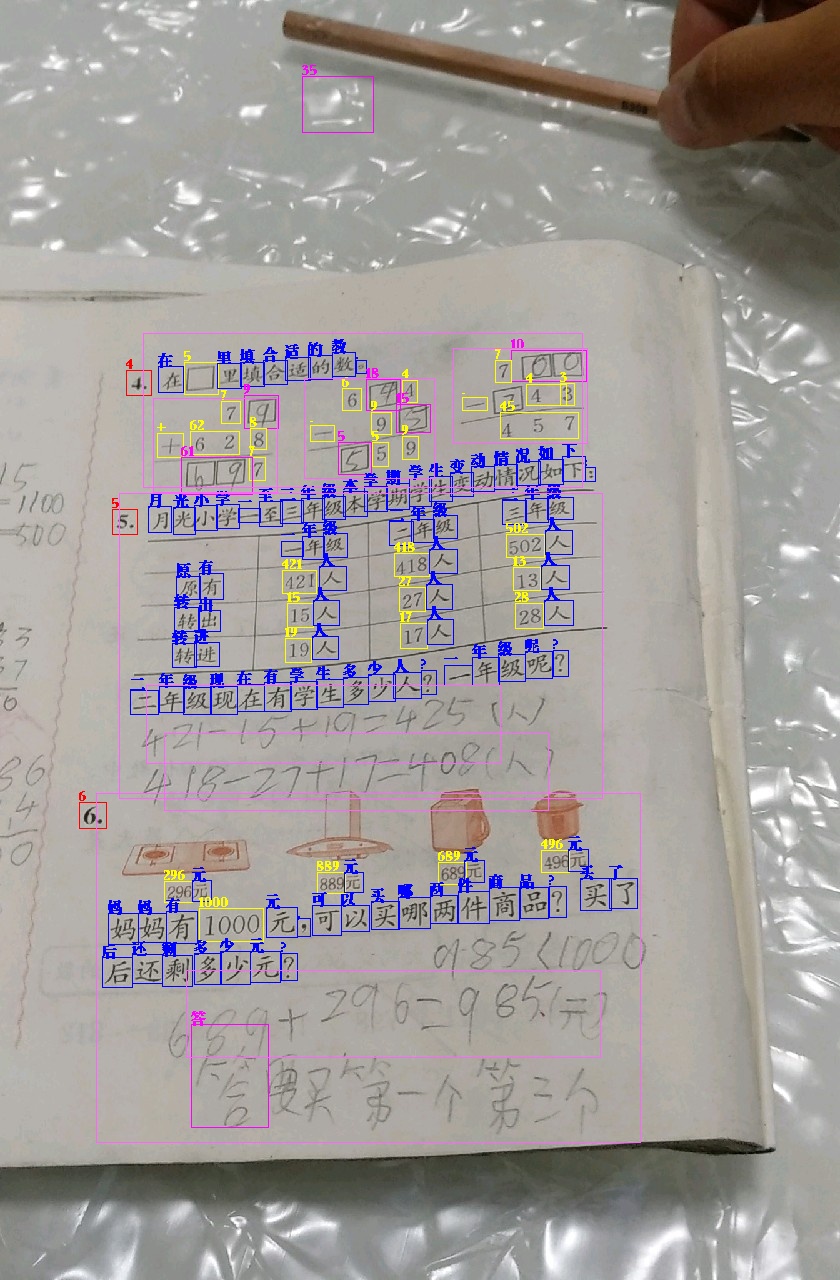 4. 在□里填合适的数。
7 9 6 9 4 7 0 0
+ 6 2 8 − 9 5 − 4 3
6 9 7 5 5 9 4 5 7
5. 月光小学一至三年级本学期学生变动情况如下：
一年级 二年级 三年级
原有 421人 418人 502人
转出 15人 27人 13人
转进 19人 17人 28人
二年级现在有学生多少人？一年级呢？
421−15+19=425(人)
418−27+17=408(人)
6.
296元 889元 689元 496元
妈妈有1000元，可以买哪两件商品？买了
后还剩多少元？
985<1000
689+296=985(元)
答要买第一个第三个
15
=1100
=500